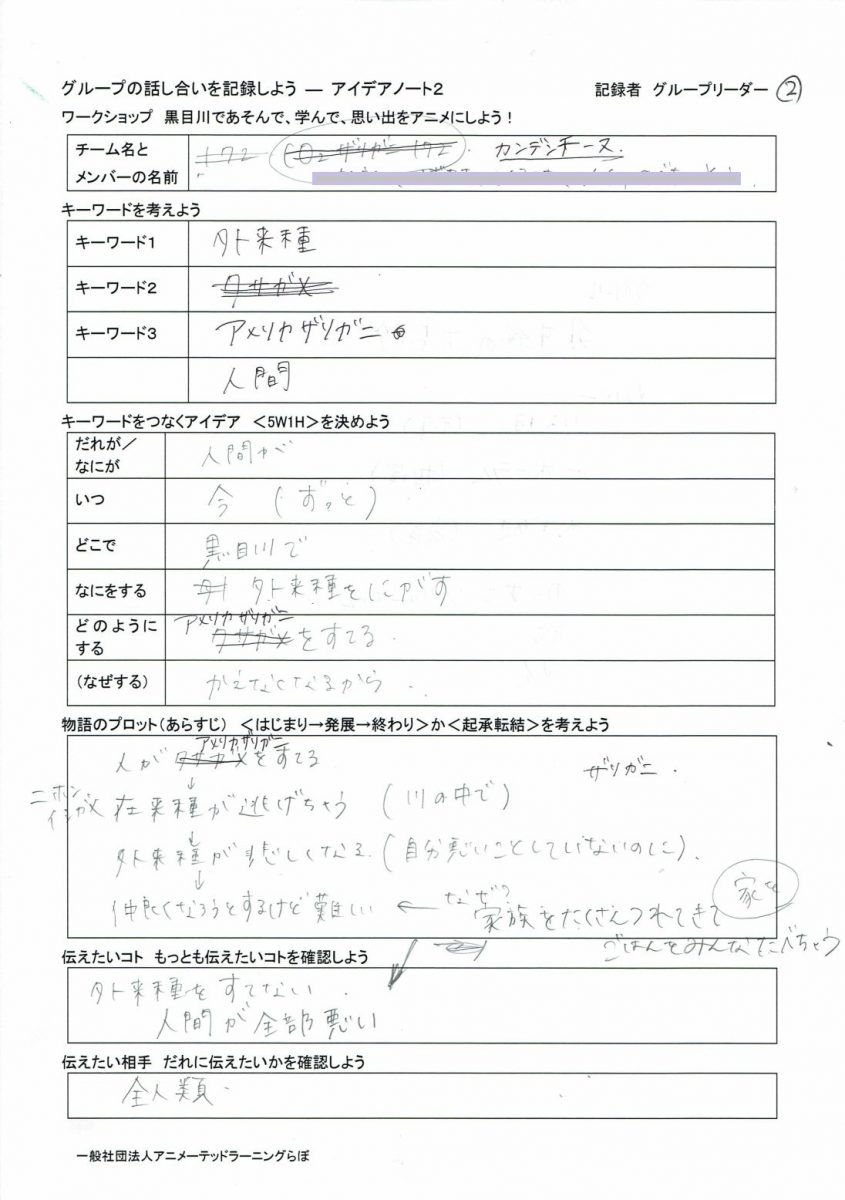 グループの話し合いを記録しよう ― アイデアノート2
記録者 グループリーダー ②
ワークショップ 黒目川であそんで、学んで、思い出をアニメにしよう！
チーム名と
メンバーの名前
ザリガニ
カンデシチーヌ.
キーワードを考えよう
キーワード1 外来種
キーワード2 クサガメ
キーワード3 アメリカザリガニ
人間
キーワードをつなぐアイデア <5W1H>を決めよう
だれが／
なにが
人間が
いつ 今 (ずっと)
どこで 黒目川で
なにをする 外来種をにがす
どのように
する
アメリカザリガニ
クサガメをすてる.
(なぜする) かえなくなるから.
物語のプロット(あらすじ) <はじまり→発展→終わり>か<起承転結>を考えよう
アメリカザリガニ
人がクサガメをすてる
ザリガニ.
↓
ニホンイシガメ 在来種が逃げちゃう (川の中で)
↓
外来種が悲しくなる. (自分悪いことしていないのに).
↓
仲良くなろうとするけど難しい ← なぜ?
家族をたくさんつれてきて
家を
ごはんをみんなたべちゃう
伝えたいコト もっとも伝えたいコトを確認しよう
外来種をすてない.
人間が全部悪い
伝えたい相手 だれに伝えたいかを確認しよう
全人類.
一般社団法人アニメーテッドラーニングらぼ